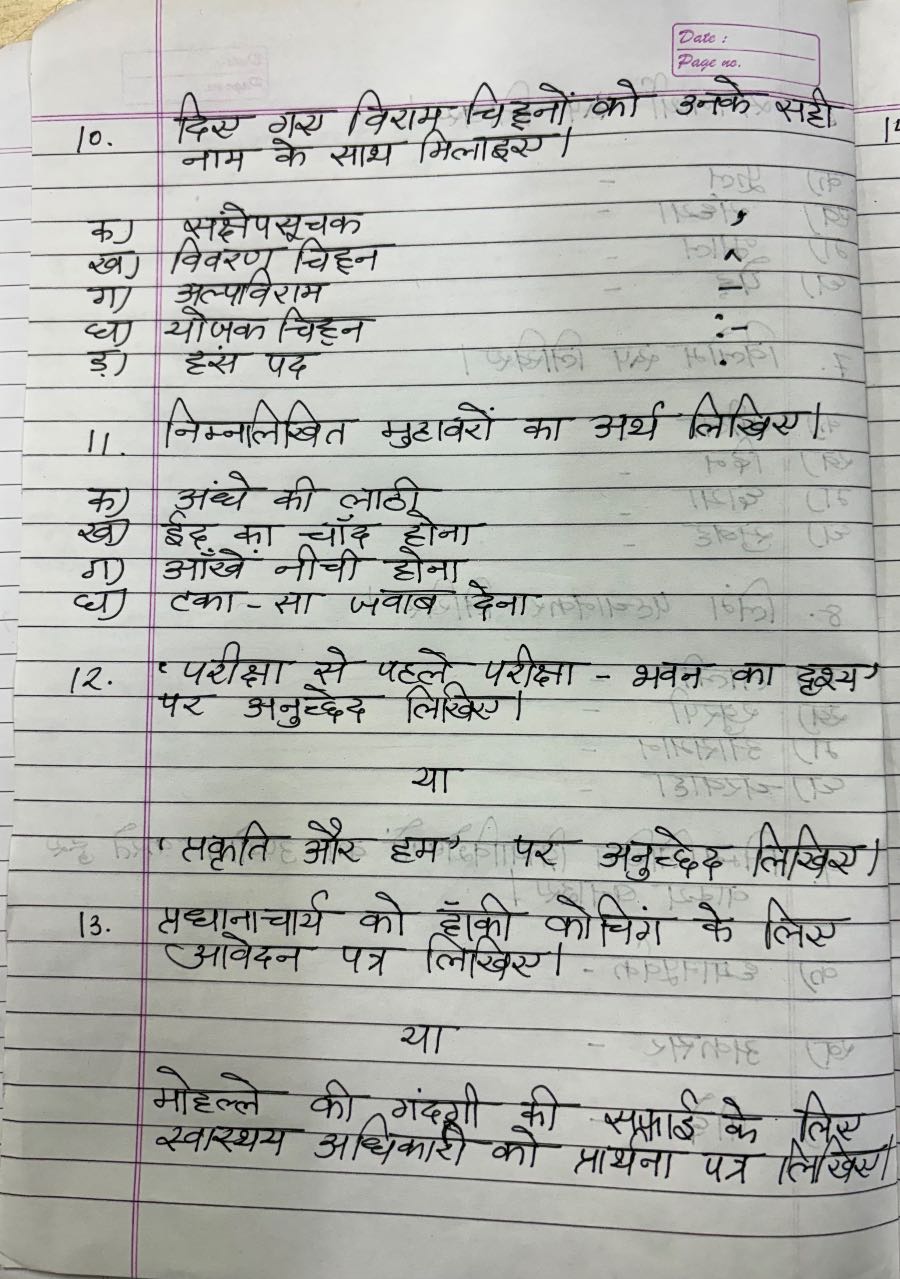 Date :
Page no.
10. दिए गए विराम चिह्नों को उनके सही
नाम के साथ मिलाइए।
क) सक्षेपसूचक ,
ख) विवरण चिह्न ^
ग) अल्पविराम –
घ) योजक चिह्न :–
ड़) हंस पद .
11. निम्नलिखित मुहावरों का अर्थ लिखिए।
क) अंधे की लाठी
ख) ईद का चाँद होना
ग) आँखें नीची होना
घ) टका - सा जवाब देना
12. 'परीक्षा से पहले परीक्षा - भवन का दृश्य'
पर अनुच्छेद लिखिए।
या
'प्रकृति और हम' पर अनुच्छेद लिखिए।
13. प्रधानाचार्य को हॉकी कोचिंग के लिए
आवेदन पत्र लिखिए।
या
मोहल्ले की गंदगी की सफ़ाई के लिए
स्वास्थय अधिकारी को प्राथना पत्र लिखिए।